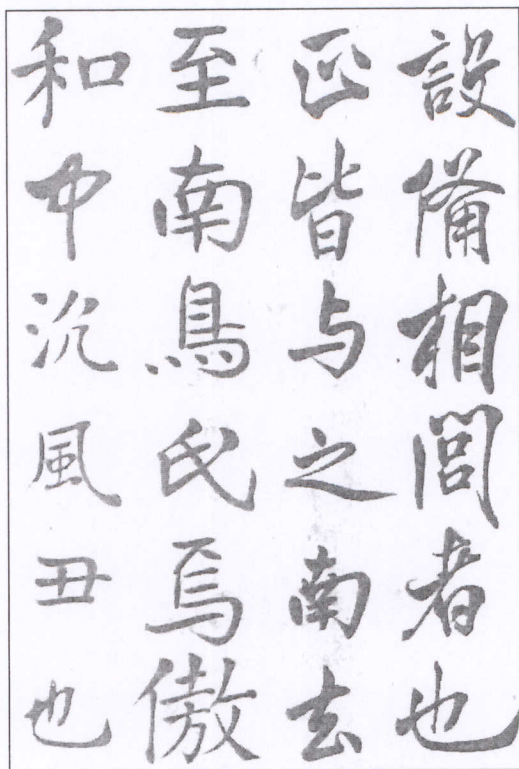 設備相閻者也
正皆与之南去
至南鳥氏焉傲
和中沉風丑也